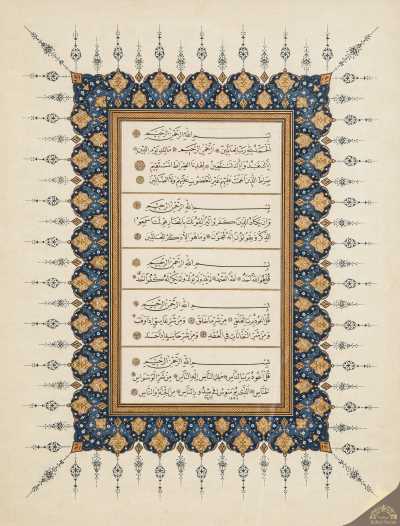 بسم الله الرحمن الرحيم
الحمد لله رب العالمين الرحمن الرحيم مالك يوم الدين
إياك نعبد وإياك نستعين اهدنا الصراط المستقيم
صراط الذين أنعمت عليهم غير المغضوب عليهم ولا الضالين
بسم الله الرحمن الرحيم
وإن يكاد الذين كفروا ليزلقونك بأبصارهم لما سمعوا
الذكر ويقولون إنه لمجنون وما هو إلا ذكر للعالمين
بسم الله الرحمن الرحيم
قل هو الله أحد الله الصمد لم يلد ولم يولد ولم يكن له كفوا أحد
بسم الله الرحمن الرحيم
قل أعوذ برب الفلق من شر ما خلق ومن شر غاسق إذا وقب
ومن شر النفاثات في العقد ومن شر حاسد إذا حسد
بسم الله الرحمن الرحيم
قل أعوذ برب الناس ملك الناس إله الناس من شر الوسواس
الخناس الذي يوسوس في صدور الناس من الجنة والناس